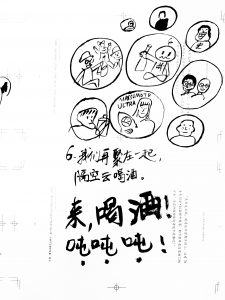 ULTRA
6. 我们再聚在一起，
隔空云喝酒。
来，喝酒！
吨吨吨！